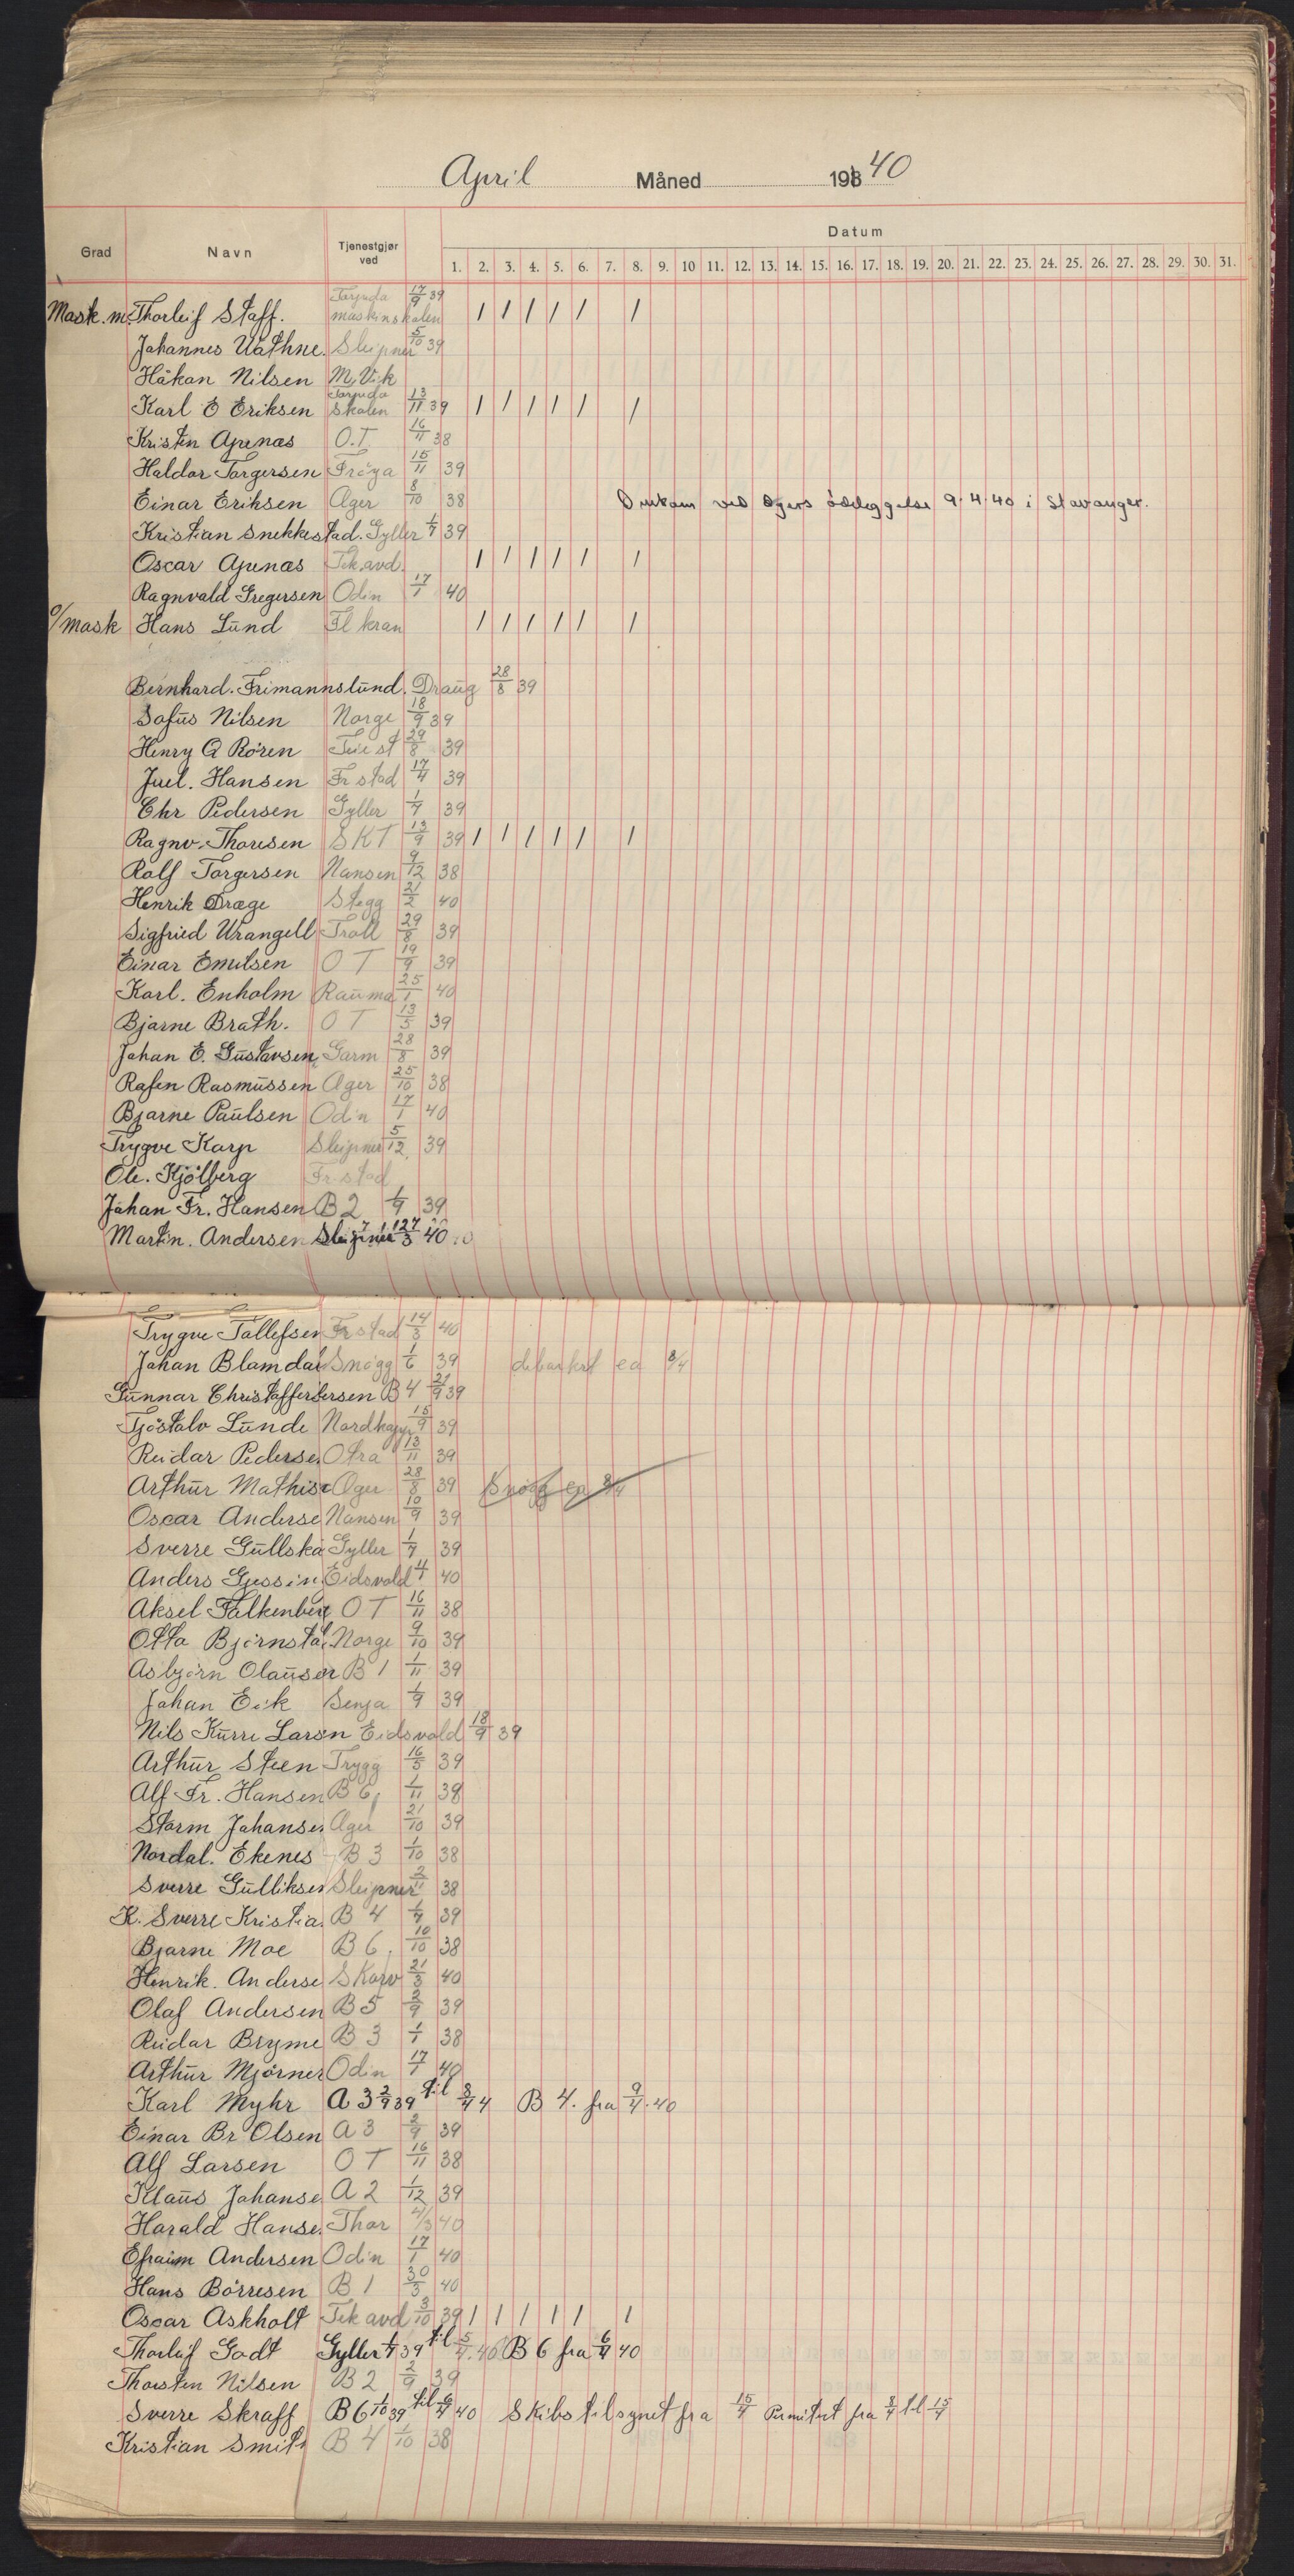 April Måned 193 40
Grad Navn Tjenestgjør ved Datum
1. 2. 3. 4. 5. 6. 7. 8. 9. 10 11. 12. 13. 14. 15. 16. 17. 18. 19. 20. 21. 22. 23. 24. 25. 26. 27. 28. 29. 30. 31.
Mask.m. Thorleif Staff. Torpedo maskinskolen 17/9 39 / / / / / /
Johannes Vathne. Sleipner 5/10 39
Håkan Nilsen M, Vik
Karl E Eriksen Torpedo skolen 13/11 39 / / / / / /
Kristen Apenæs O.T. 16/11 38
Haldor Torgersen Fröya 15/11 39
Einar Eriksen Æger 8/10 38 Omkom ved Ægers ödeleggelse 9.4.40 i Stavanger.
Kristian Snekkestad. Gyller 1/7 39
Oscar Apenæs Tek.avd. / / / / / /
Ragnvald Gregersen Odin 17/1 40
o/mask Hans Lund Fl kran / / / / / /
Bernhard. Frimannslund. Draug 28/8 39
Sofus Nilsen Norge 18/9 39
Henry A Rören Teist 29/8 39
Juel. Hansen Fr stad 17/4 39
Chr Pedersen Gyller 1/7 39
Ragnv. Thoresen SKT 13/9 39 / / / / / /
Rolf Torgersen Nansen 9/12 38
Henrik Dræge Stegg 21/2 40
Sigfried Wrangell Troll 29/8 39
Einar Emilsen O T 19/9 39
Karl. Enholm Rauma 25/1 40
Bjarne Brath. O T 13/5 39
Johan E. Gustavsen Garm 28/8 39
Rafen Rasmussen Æger 25/10 38
Bjarne Paulsen Odin 17/1 40
Trygve Karp Sleipner 5/12. 39
Ole. Kjölberg Fr.stad
Johan Fr. Hansen B 2 1/9 39
Martin. Andersen Sleipner 27/3 40
Trygve Tallefsen Fr stad 14/3 40
Johan Blamdal Snögg 1/6 39 debarkert ea 8/4
Gunnar Christoffersen B 4 21/9 39
Tjöstolv Lunde Nordkapp 15/9 39
Reidar Pederse Otra 13/11 39
Arthur Mathise Æger 28/8 39 Snögg ea 8/4
Oscar Anderse Nansen 10/9 39
Sverre Gullska Gyller 1/7 39
Anders Gjessin Eidsvold 4/1 40
Aksel Falkenberg O T 16/11 38
Otto Björnstad Norge 9/10 39
Asbjörn Olausen B 1 1/11 39
Johan Eek Senja 1/9 39
Nils Kurre Larsen Eidsvold 18/9 39
Arthur Steen Trygg 16/5 39
Alf Fr. Hansen B 6 1/11 39
Storm Johansen Æger 21/10 39
Nordal. Ekenes B 3 1/10 38
Sverre Gulliksen Sleipner 2/11 38
K. Sverre Kristia. B 4 1/7 39
Bjarne Moe B 6. 10/10 38
Henrik. Anderse Skarv 21/3 40
Olaf Andersen B 5 2/9 39
Reidar Bryme B 3 1/1 38
Arthur Mjörner Odin 17/1 40
Karl Myhr A 3 2/9 39 til 8/4 4 B 4. fra 9/4.40
Einar Br Olsen A 3 2/9 39
Alf Larsen O T 16/11 38
Klaus Johanse A 2 1/12 39
Harald Hanse. Thor 4/3 40
Efraim Andersen Odin 17/1 40
Hans Börresen B 1 30/3 40
Oscar Askholt Tek avd 3/10 39 / / / / / /
Thorleif Godt Gyller 1/7 39 til 5/4.40 B 6 fra 6/4 40
Thorsten Nilsen B 2 2/9 39
Sverre Skraff B 6 1/10 39 til 6/4 40 Skibstilsynet fra 15/4 Permitert fra 8/4 til 15/4
Kristian Smith B 4 1/10 38